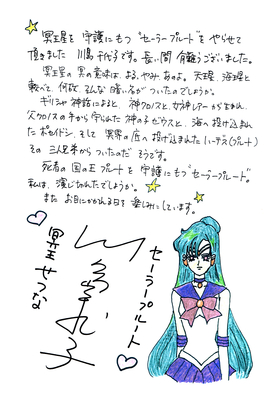 冥王星を守護にもつ"セーラープルート"をやらせて
頂きました 川島千代子です。長い間 有難うございました。
冥王星の冥の意味は、よる、やみ、あのよ。天王星、海王星と
較べて、何故、そんな暗い名がついたのでしょうか。
ギリシャ神話によると、神クロノスと、女神レアーから生まれ、
父クロノスの手から守られた神の子ゼウスと、海へ投げ込まれ
たポセイドン、そして冥界の底へ投げ込まれたハーデス(プルート)
その三兄弟からついたのだそうです。
死者の国の王プルートを守護にもつ"セーラープルート"。
私は、演じきれたでしょうか。
また お目にかかれる日を楽しみにしています。
セーラープルート
川島千代子
冥王せつな